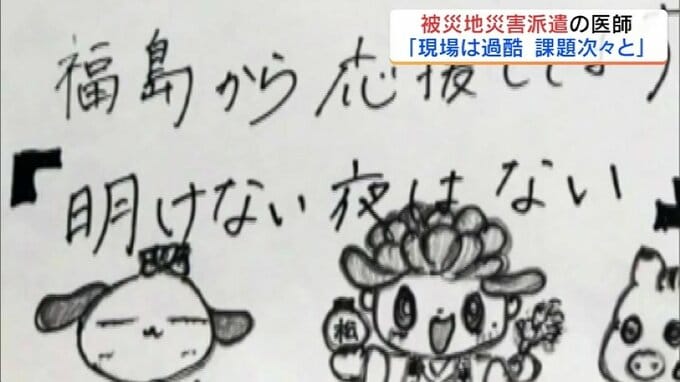 被災地災害派遣の医師
「現場は過酷 課題次々と」
福島から応援してます
『明けない夜はない』
福